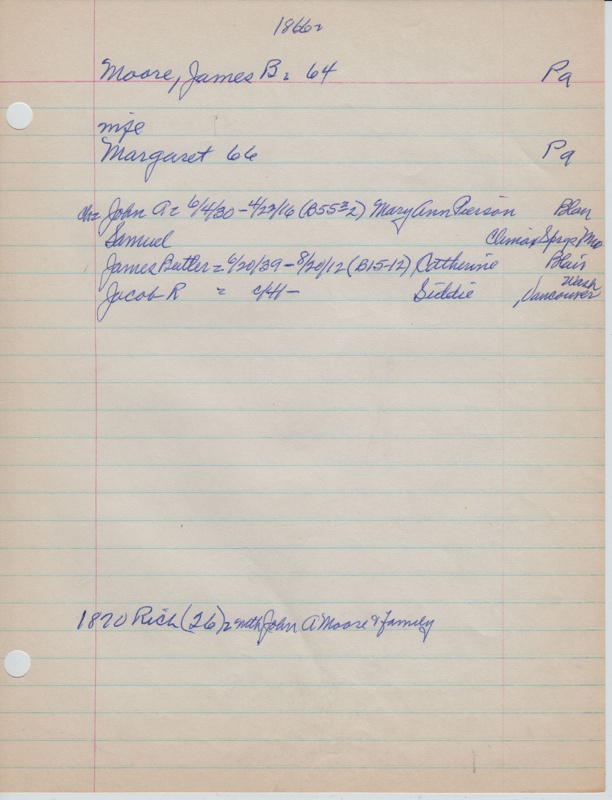 1866-
Moore, James B - 64 Pa
wife
Margaret 66 Pa
ch- John A - 6/4/30 - 4/23/16 (B55-2) Mary Ann Pierson Blair
Samuel Climax Spgs, Mo
James Butler = 6/20/39 - 8/20/12 (B15-12) Catherine Blair
Jacob R = c/41 - Siddie Vancouver Wash
1870 Rich (26) - with John A Moore & family